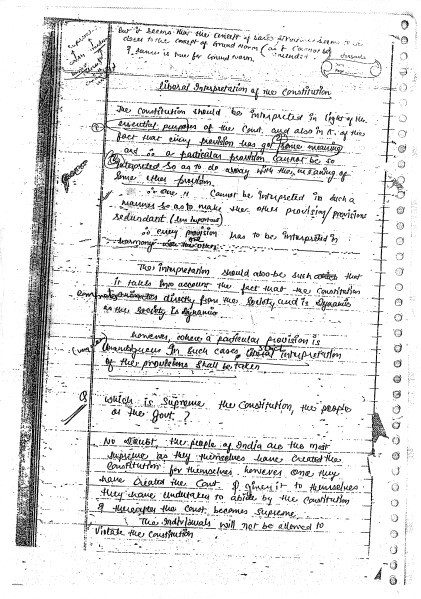 But it seems that the concept of basic structure seems to be
close to the concept of Grund Norm (as it cannot be
& same is true for Grund norm.
Liberal Interpretation of the Constitution
The Constitution should be interpreted in light of the
essential purposes of the Const. and also in lt. of the
fact that every provision has got some meaning
and ∴ a particular provision cannot be so
interpreted so as to do away with the meaning of
some other provision.
∴ one cannot be interpreted in such a
manner so as to make the other provision/provisions
redundant (less important)
∴ every provision has to be interpreted in
harmony with the others
The interpretation should also be such that
it takes into account the fact that the Constitution
directly from the society and is dynamic
as the society is dynamic
however, where a particular provision is
unambiguous in such cases literal interpretation
of the provisions shall be taken
Q which is supreme the Constitution, the people
or the Govt. ?
No doubt, the people of India are the most
supreme as they themselves have created the
Constitution for themselves, however once they
have created the Const. & given it to themselves
they have undertaken to abide by the Constitution
& thereafter the Const. becomes supreme
The Individuals will not be allowed to
violate the Constitution